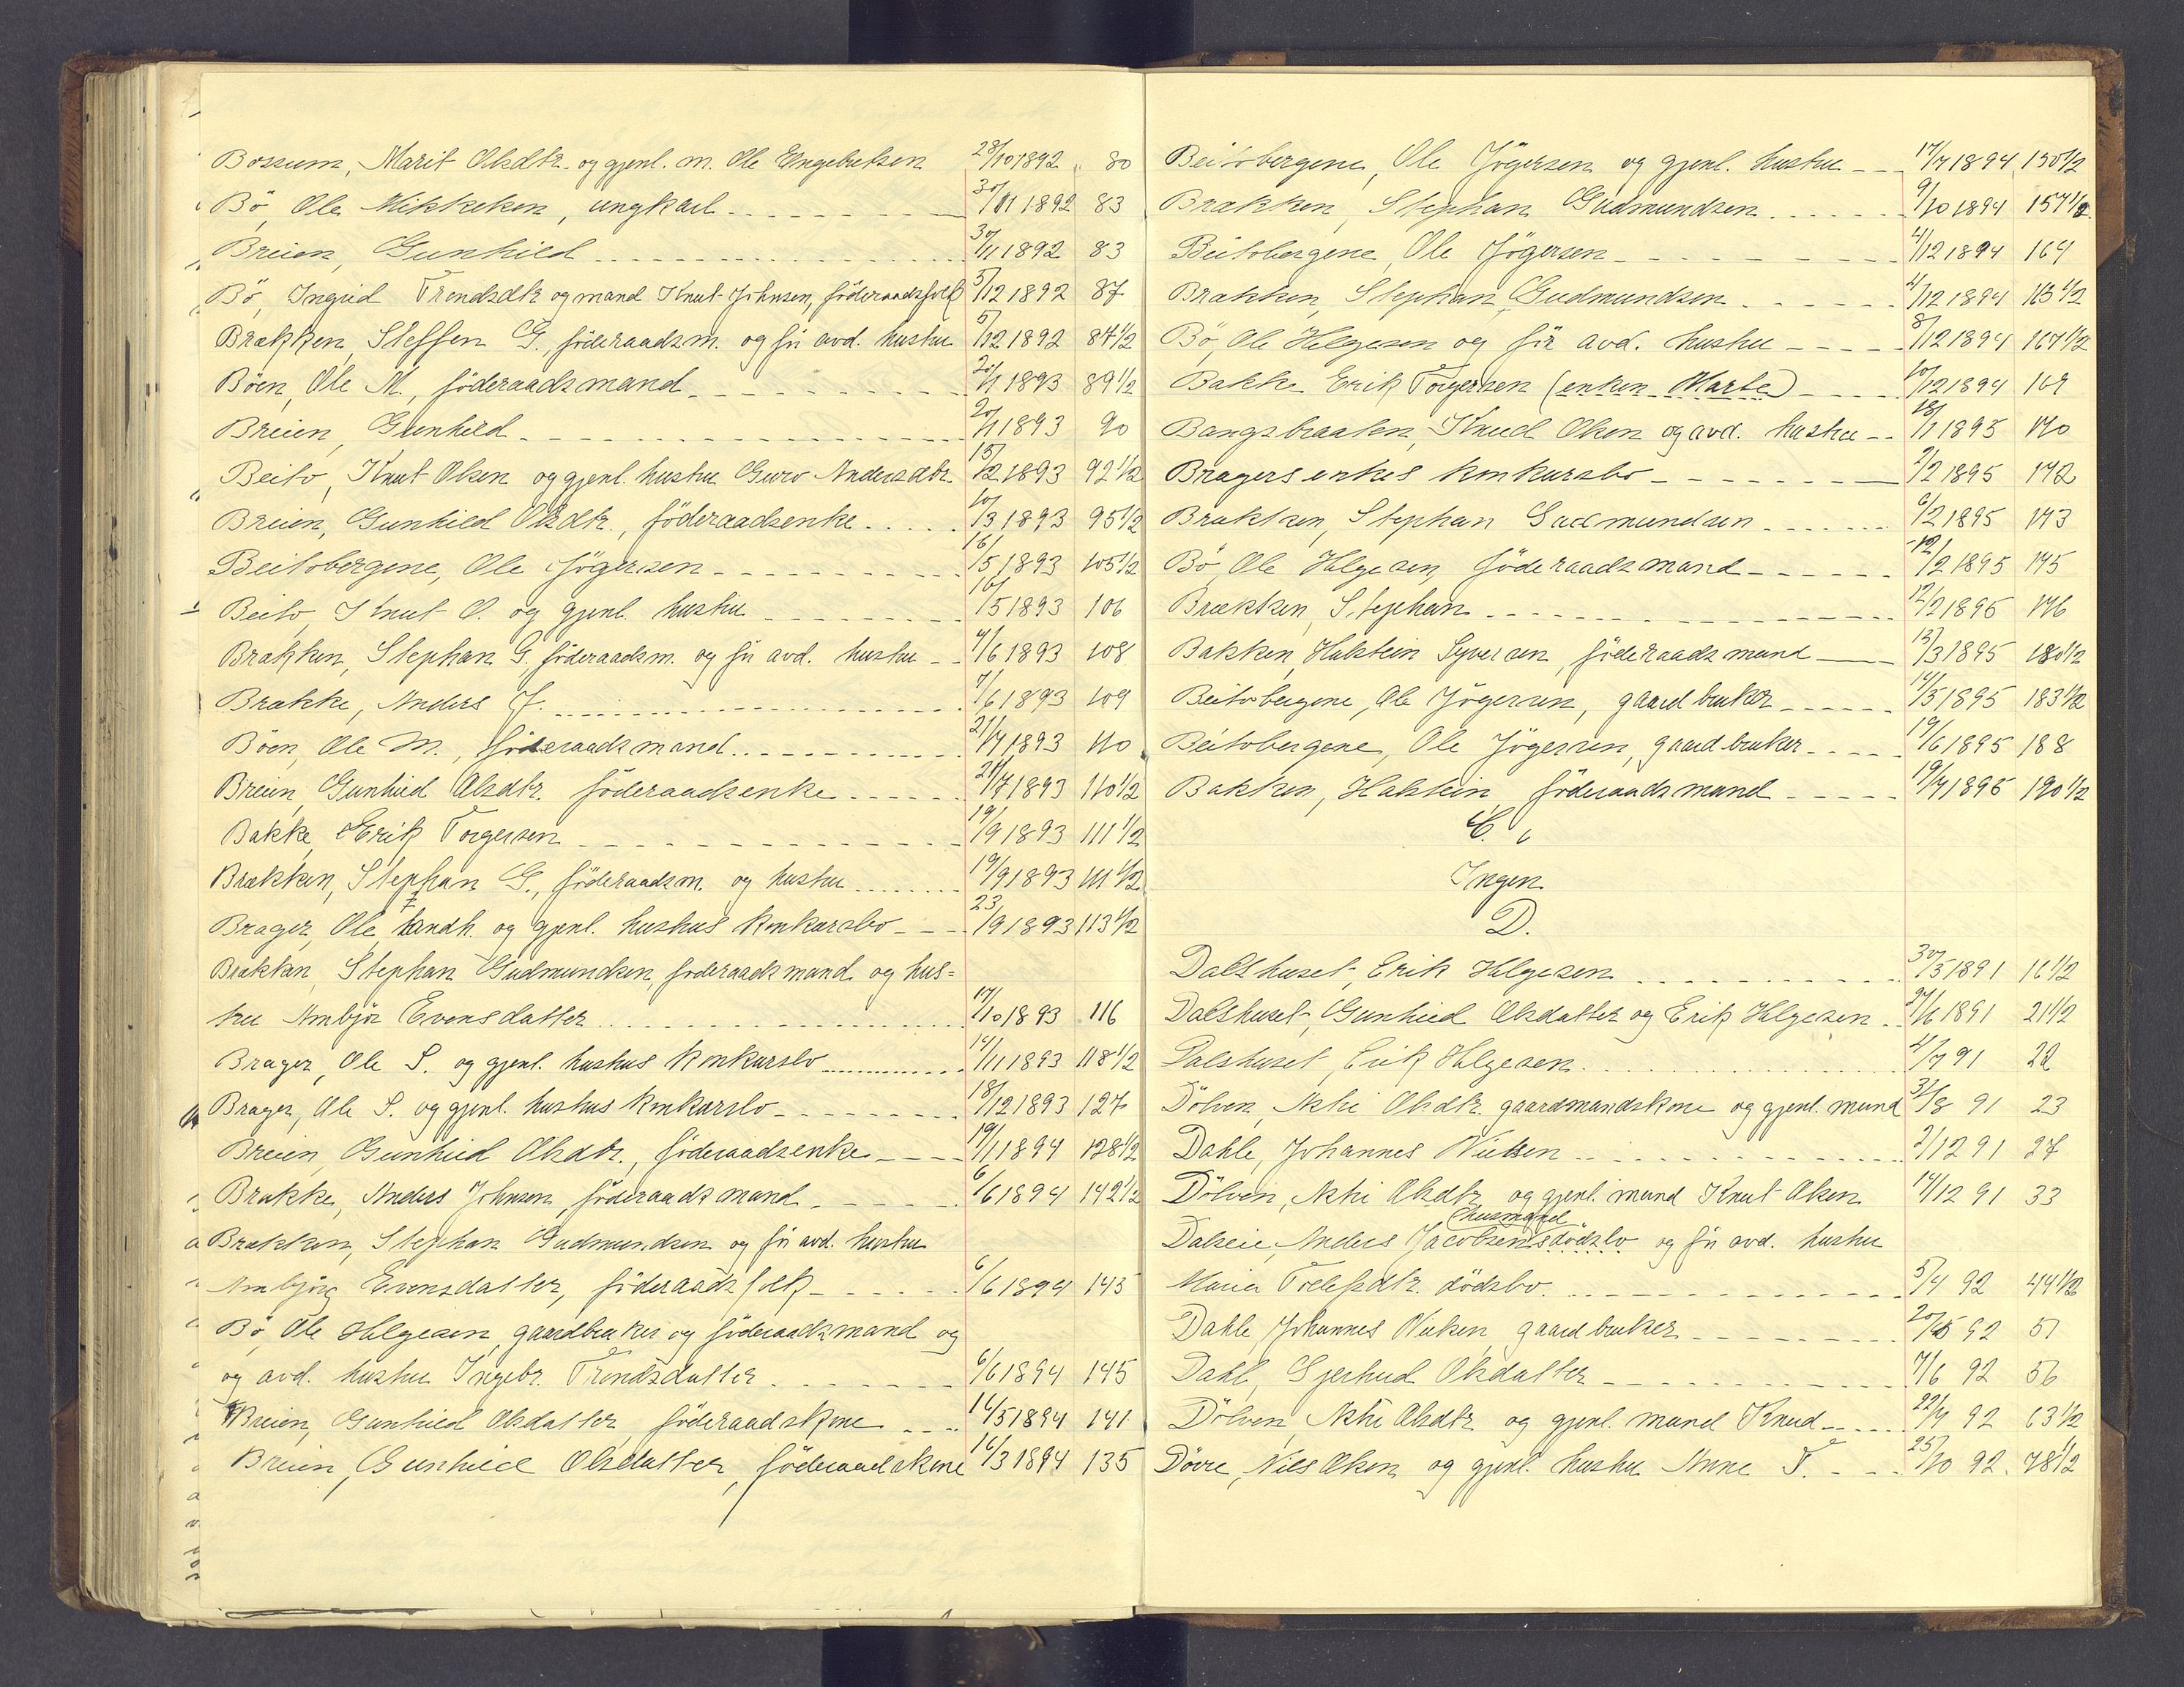 Bossum, Marit Olsdtr. og gjenl. m. Ole Engebretsen 28/10 1892 80
Bö, Ole Mikkelsen, ungkarl 30/11 1892 83
Breien, Gunhild 30/11 1892 83
Bö, Ingrid Trondsdtr og mand Knut Johnsen, föderaadsfolk 5/12 1892 87
Brækken, Steffen G., föderaadsm. og für avd. hustru 5/12 1892 87 1/2
Böen, Ole M., föderaadsmand 20/1 1893 89 1/2
Breien, Gunhild 20/1 1893 90
Beito, Knut Olsen og gjenl. hustru Guro Andersdtr. 15/2 1893 92 1/2
Breien, Gunhild Olsdtr., föderaadsenke 10/3 1893 95 1/2
Beitobergene, Ole Jögersen 16/5 1893 105 1/2
Beito, Knut O. og gjenl. hustru 16/5 1893 106
Brækken, Stephan G. föderaadsm. og för avd. hustru 7/6 1893 108
Brække, Anders J. 7/6 1893 109
Böen, Ole M., föderaadsmand 21/7 1893 110
Breien, Gunhild Olsdtr. föderaadsenke 21/7 1893 110 1/2
Bakke, Erik Torgersen 19/9 1893 111 1/2
Brækken, Stephan G., föderaadsm. og hustru 19/9 1893 111 1/2
Brager, Ole, handh. og gjenl. hustrus konkursbo 23/9 1893 113 1/2
Brækken, Stephan Gudmundsen, föderaadsmand og hus=
tru Ambjör Evensdatter 17/10 1893 116
Brager, Ole S. og gjenl. hustrus konkursbo 14/11 1893 118 1/2
Brager, Ole S. og gjenl. hustrus konkursbo 18/12 1893 127
Breien, Gunhild Olsdtr., föderaadsenke 19/1 1894 128 1/2
Brække, Anders Johnsen, föderaadsmand 6/6 1894 142 1/2
Brækken, Stephan Gudmundsen og för avd. hustru
Ambjörg Evensdatter, föderaadsfolk 6/6 1894 143
Bö, Ole Helgesen, gaardbruker og föderaadsmand og
og avd. hustru Ingebr. Trondsdatter 6/6 1894 145
Breien, Gunhild Olsdatter, föderaadskone 16/5 1894 141
Breien, Gunhild Olsdatter, föderaadskone 16/3 1894 135
Beitobergene, Ole Jögersen og gjenl. hustru 17/7 1894 150 1/2
Brækken, Stephan Gudmundsen 9/10 1894 157 1/2
Beitobergene, Ole Jögersen 4/12 1894 164
Brækken, Stephan Gudmundsen 4/12 1894 165 1/2
Bö, Ole Helgesen og för avd. hustru 8/12 1894 167 1/2
Bakke Erik Torgersen (enken Marte) 10/12 1894 169
Bangsbraaten, Knud Olsen og avd. hustru 18/1 1895 170
Bragers enkes konkursbo 2/2 1895 172
Brækken, Stephan Gudmundsen 6/2 1895 173
Bö, Ole Helgesen, föderaadsmand 12/2 1895 175
Brækken, Stephan 12/2 1895 176
Bakken, Halstein Syversen, föderaadsmand 13/3 1895 180 1/2
Beitobergene, Ole Jögersen, gaardbruker 14/5 1895 183 1/2
Beitobergene, Ole Jögersen, gaardbruker 19/6 1895 188
Bakken, Halstein föderaadsmand 19/7 1895 190 1/2
C.
Ingen
D.
Dalshuset, Erik Helgesen 30/5 1891 16 1/2
Dalshuset, Gunhild Olsdatter og Erik Helgesen 27/6 1891 21 1/2
Dalshuset, Erik Helgesen 4/7 91 22
Dölven, Astri Olsdtr. gaardmandskone og gjenl. mand 31/8 91 23
Dahle, Johannes Nielsen 2/12 91 27
Dölven, Astri Olsdtr og gjenl. mand Knut Olsen 14/12 91 33
(husmand
Dalseie, Anders Jacobsens dödsbo og för avd. hustru
Maria Trelefsdtr. dödsbo. 5/4 92 44 1/2
Dahle, Johannes Nielsen, gaardbruker 20/5 92 51
Dahl, Gjertrud Olsdatter 7/6 92 56
Dölven, Astri Olsdtr og gjenl. mand Knud 22/7 92 63 1/2
Dövre, Nils Olsen og gjenl. hustru Anne T. 25/10 92 78 1/2